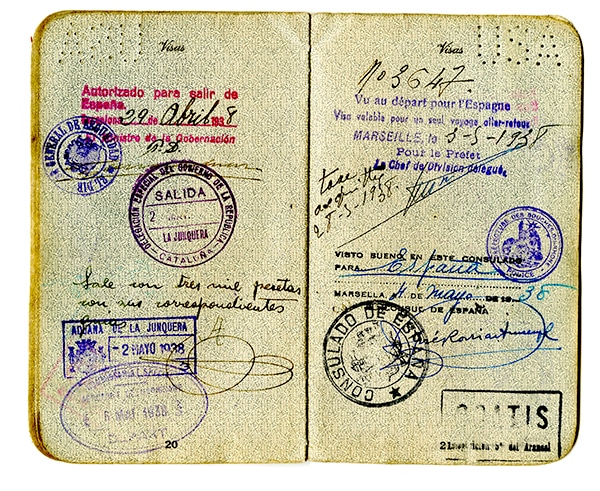 Visas
Autorizado para salir de
España.
29 Abril 1938
El Ministro de la Gobernación
P.D.
GENERAL DE SEGURIDAD
EL DIR
DELEGACION ESPECIAL DEL GOBIERNO DE LA REPUBLICA
SALIDA
2
LA JUNQUERA
CATALUÑA
Sale con tres mil pesetas
con sus correspondientes
ADUANA DE LA JUNQUERA
-2 MAYO 1938
1938
DEPART
20
Visas
USA
No 3647.
Vu au départ pour l'Espagne
Visa valable pour un seul voyage aller-retour
MARSEILLE, le 3-5-1938
Pour le Prefet
Le Chef de Division délégué,
taxe
acquittée
1938.
BOUCHES-DU-RHONE
POLICE
VISTO BUENO EN ESTE CONSULADO
PARA España
MARSELLA 4 de mayo DE 19 38
CONSUL DE ESPAÑA
CONSULADO DE ESPAÑA
GRATIS
del Arancel